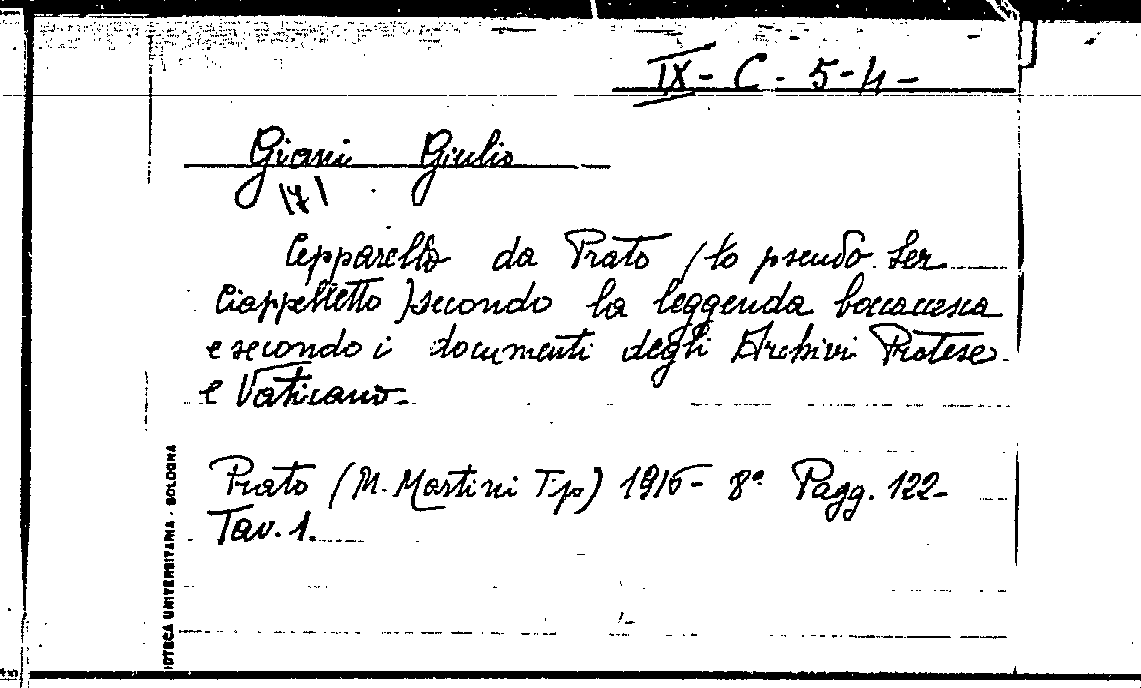 IX - C - 5 - 4 -
Giani Giulio
171
Cepparello da Prato (lo pseudo Ser
Ciappelletto) secondo la leggenda boccaccesca
e secondo i documenti degli Archivi Pratese
e Vaticano.
Prato (M. Martini Tip) 1916 - 8° Pagg. 122 -
Tav. 1.
IOTECA UNIVERSITARIA - BOLOGNA